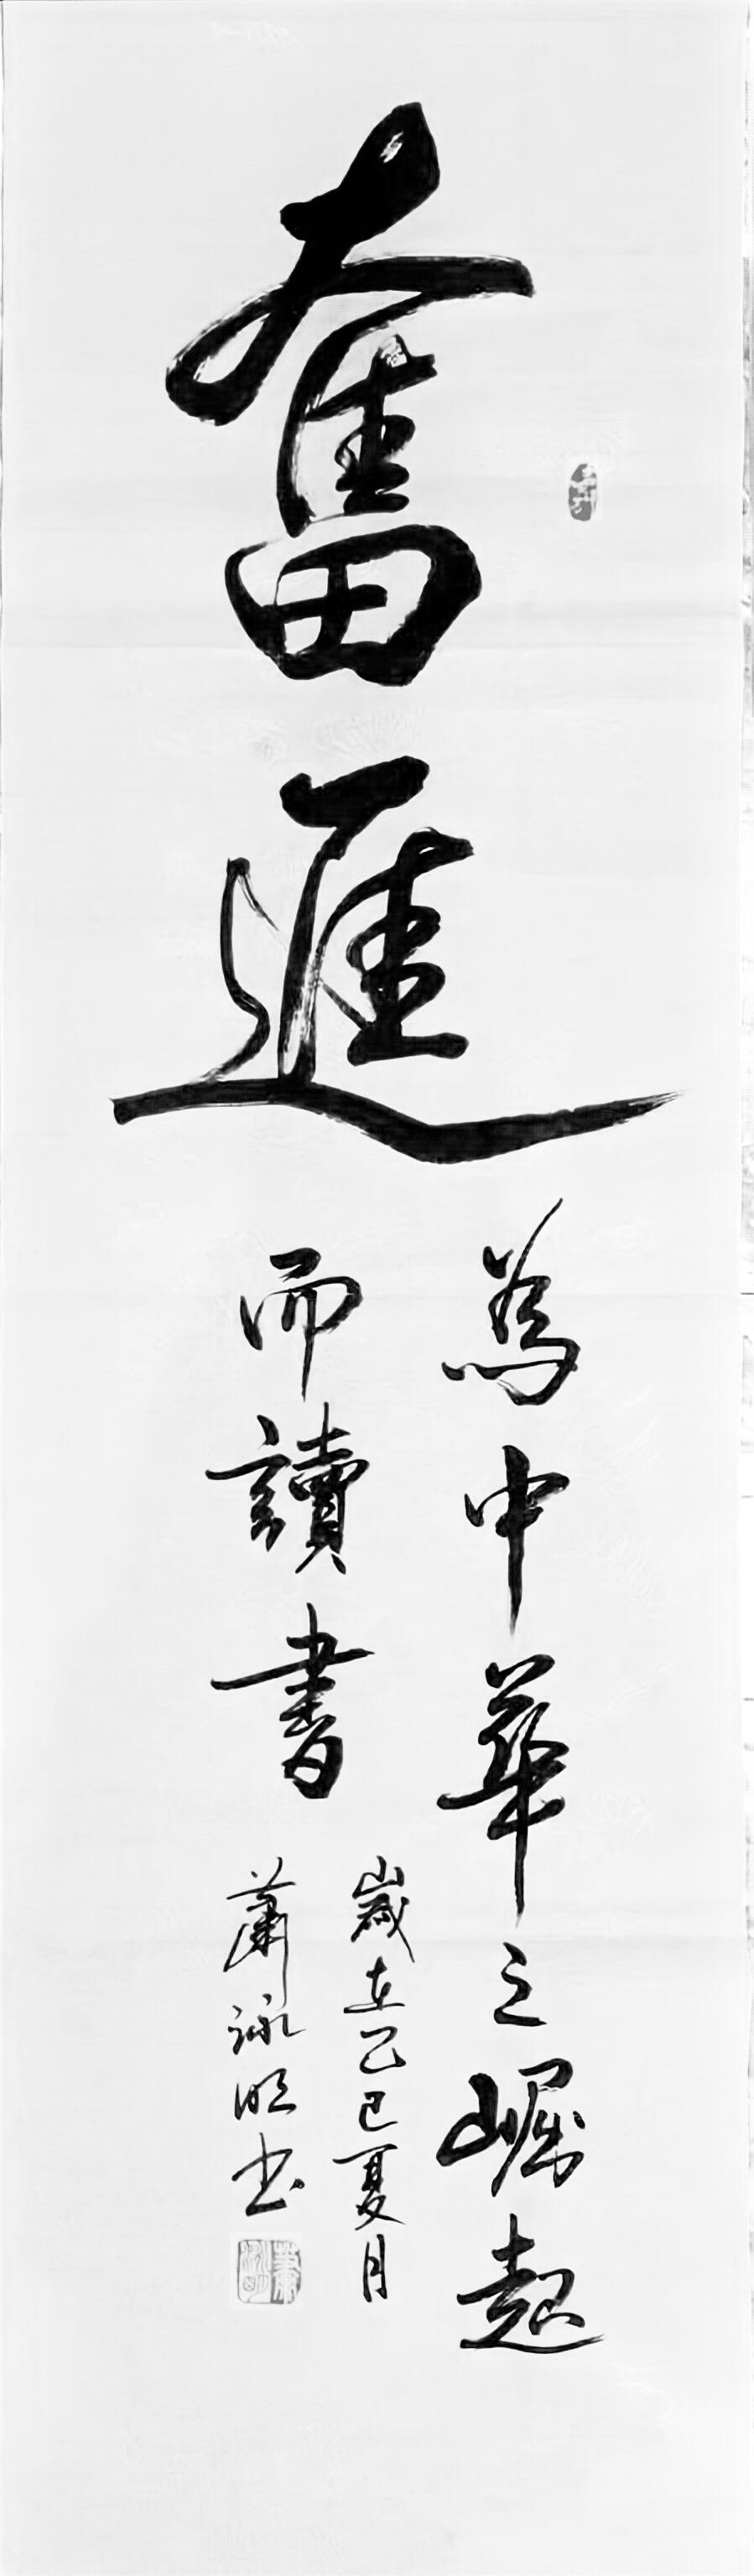 奮進
為中華之崛起
而讀書
歲在乙巳夏月
蕭詠明书